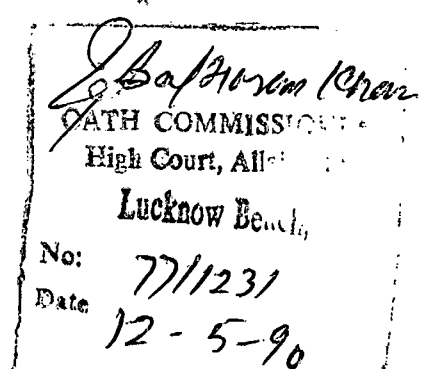 OATH COMMISS
High Court, All
Lucknow Bench,
No: 77/1231
Date 12-5-90